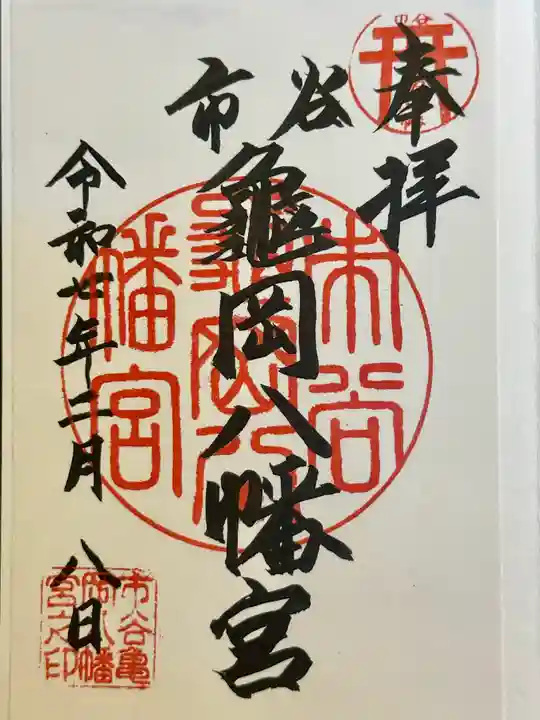 奉拝
市谷
亀岡八幡宮
令和七年二月 八日
市谷
亀岡八
幡宮
市谷亀
岡八幡
宮之印